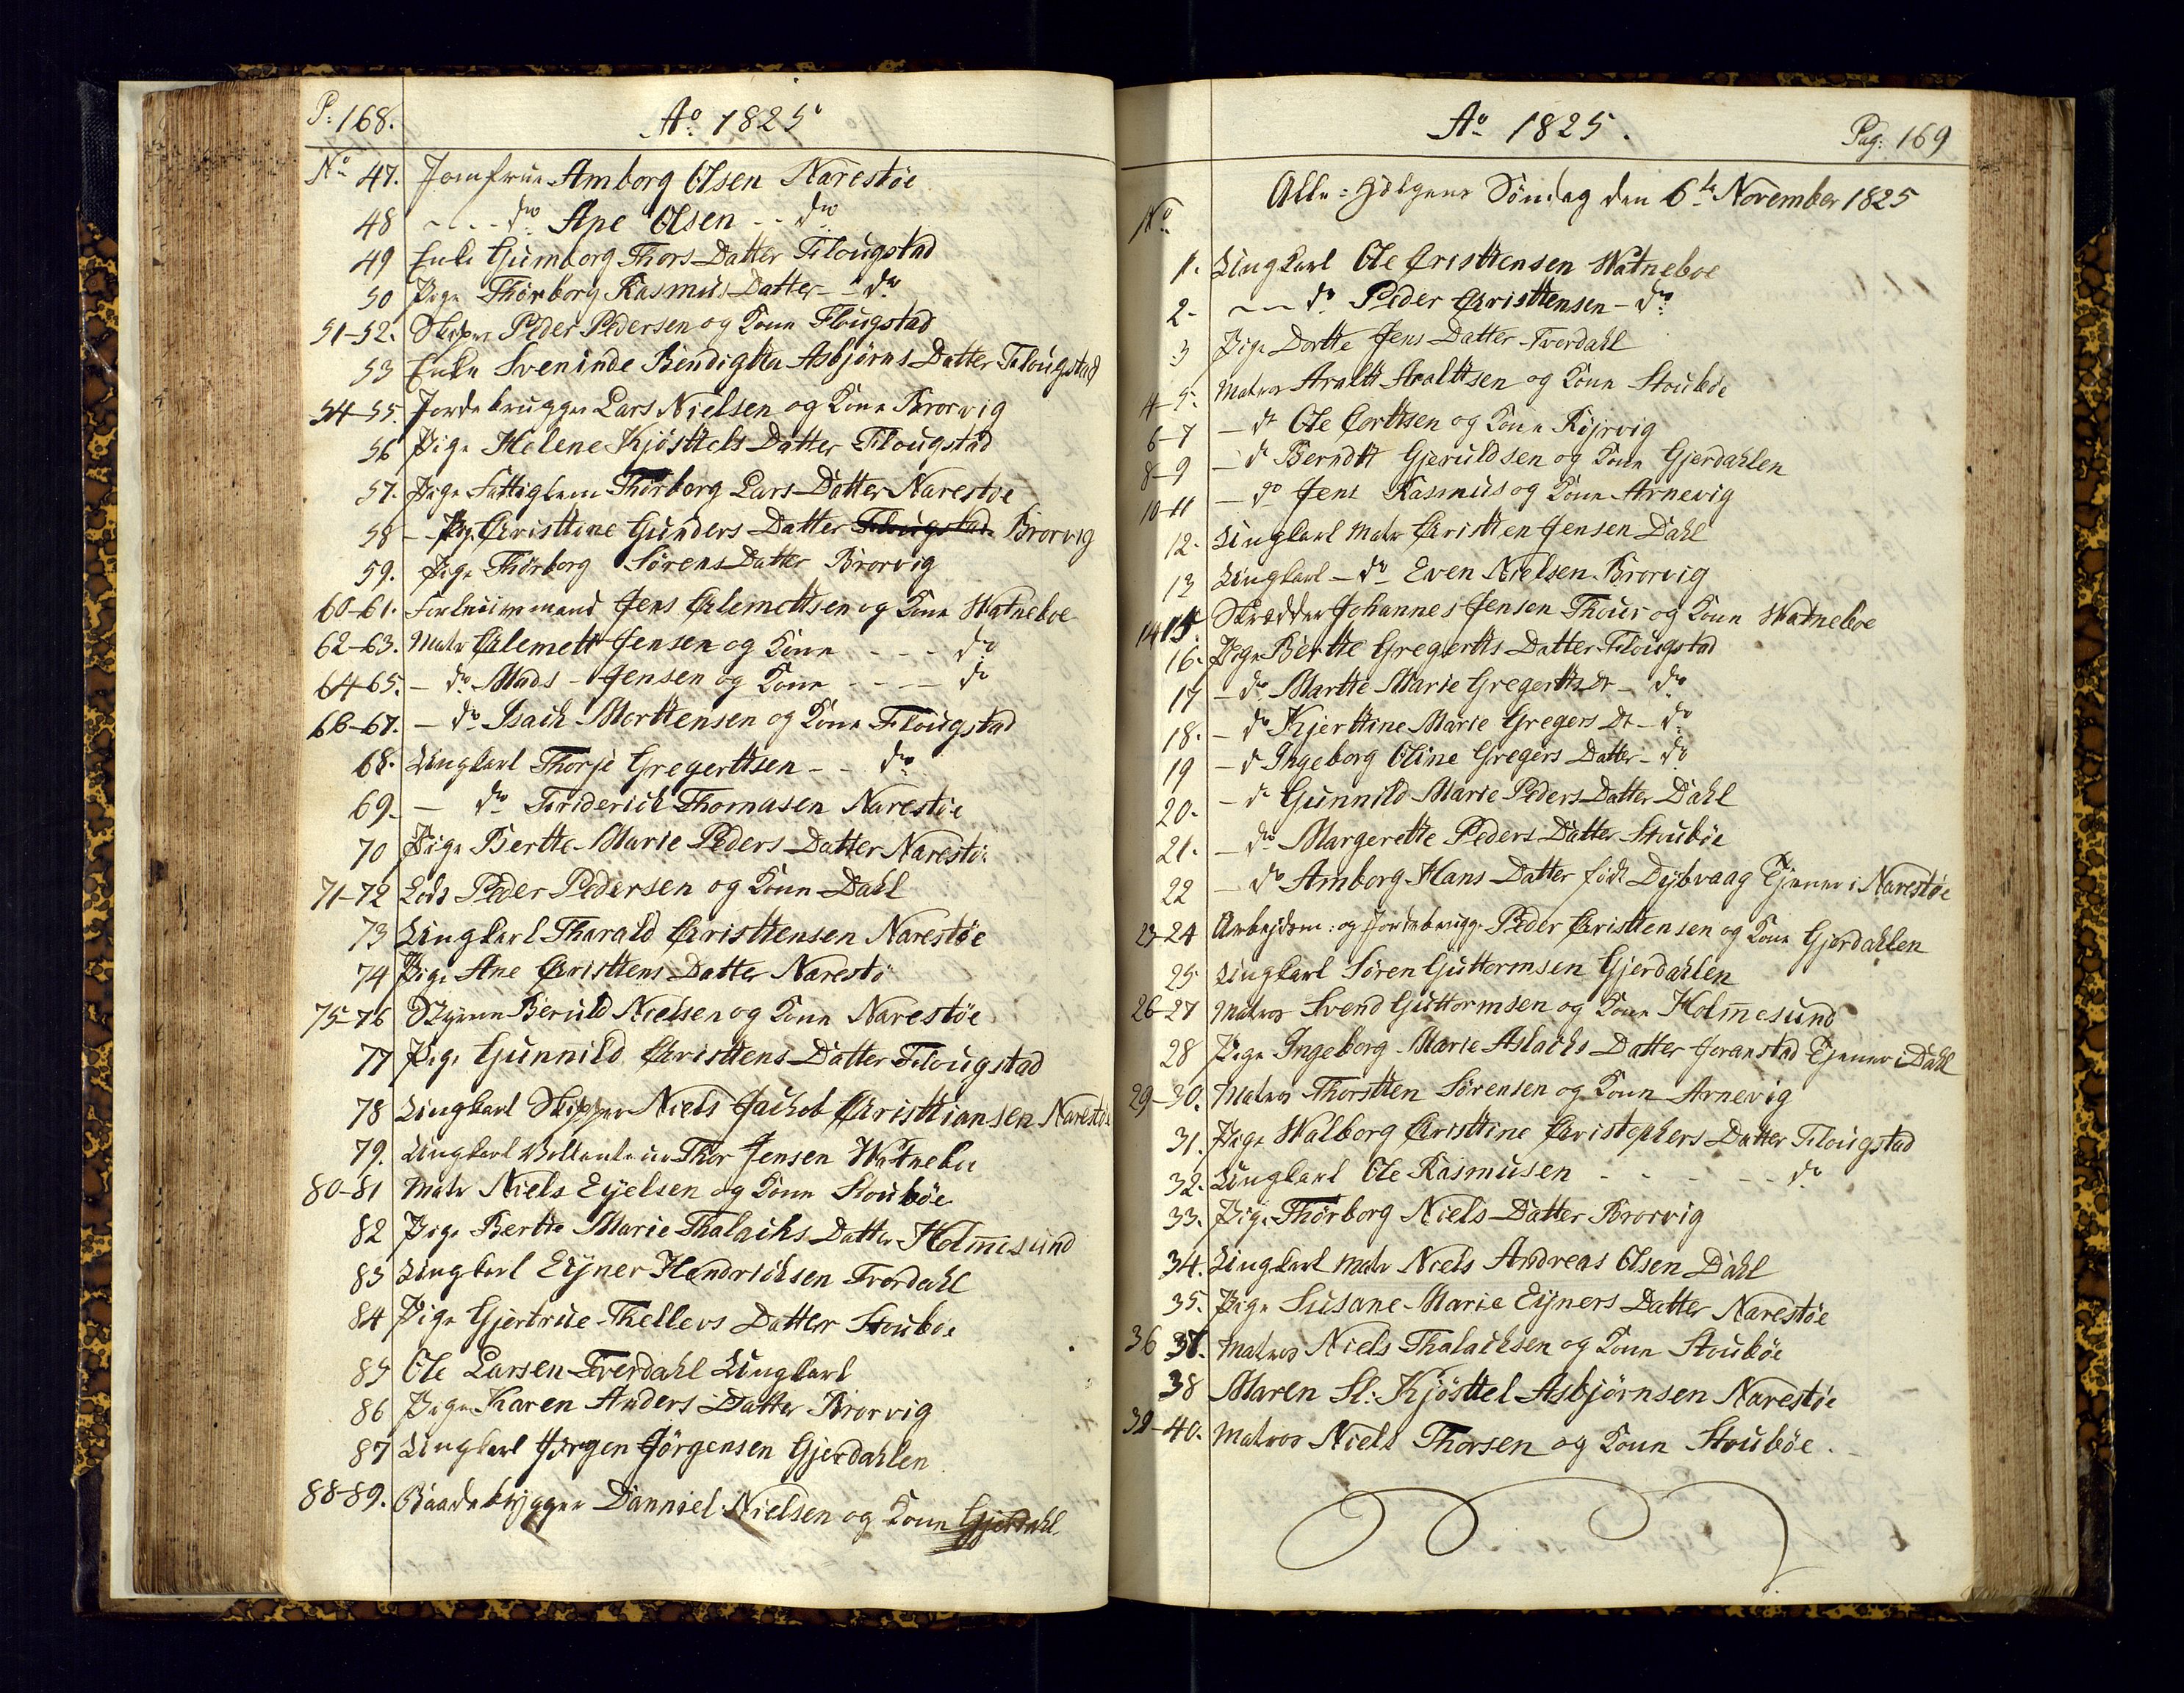 P: 168.
Ao 1825
No 47. Jomfrue Amborg Olsen Narestøe
48 - - - do Ane Olsen - - do
49 Enke Gumborg Thors Datter Flougstad
50 Pige Thorborg Rasmus Datter - do
51-52. Skipper Peder Pedersen og Kone Flougstad
53 Enke Sveninde Bendigtta Asbjørns Datter Flougstad
54-55. Jordebrugger Lars Nielsen og Kone Brorvig
56 Pige Helene Kjøsttels Datter Flougstad
57. Pige Fattiglem Thorborg Lars Datter Narestøe
58 - Pig. Christtine Gunders Datter Flougstad Brorvig
59. Pige Thorborg Sørens Datter Brorvig
60-61. Jens Clemettsen og Kone Watneboe
62-63. Matr Clemett Jensen og Kone - - - do
64-65. - do Mads Jensen og Kone - - - do
66-67. - do Isach Morttensen og Kone Flougstad
68. Ungkarl Thorje Gregerttsen - - do
69. - do Friderich Thomasen Narestøe
70 Pige Bertte Marie Peders Datter Narestøe
71-72 Lods Peder Pedersen og Kone Dahl
73 Ungkarl Tharald Christtensen Narestøe
74 Pige Ane Christtens Datter Narestø
75-76 Styrm Beruld Nielsen og Kone Narestøe
77 Pige Gunnild Christtens Datter Flougstad
78 Ungkarl Skipper Niels Jachob Christtiansen Narestøe
79. Ungkarl Thor Jensen Watnebu
80-81 Matr Niels Eyelsen og Kone Stoubøe
82 Pige Bertte Marie Thalachs Datter Holmesund
83 Ungkarl Eyner Hendrichsen Tverdahl
84 Pige Gjertrue Thellevs Datter Stoubøe
85 Ole Larsen Tverdahl Ungkarl
86 Pige Karen Anders Datter Brorvig
87 Ungkarl Jørgen Jørgensen Gjerdahlen
88-89. Baadebygger Danniel Nielsen og Kone Gjerdahl
Ao 1825.
Pag: 169
Alle-Helgens Søndag den 6te November 1825
No
1. Ungkarl Ole Cristtensen Watneboe
2. - - do Peder Christtensen - do
3 Pige Dortte Jens Datter Tverdahl
4-5. Matros Araltt Aralttsen og Kone Stoubøe
6-7 - do Ole Corttsen og Kone Kijrvig
8-9 - do Berndtt Gjeruldsen og Kone Gjerdahlen
10-11 - do Jens Rasmus og Kone Arnevig
12. Ungkarl Matr Christten Jensen Dahl
13 Ungkarl - do Even Nielsen Brorvig
14 15. Skrædder Johannes Jensen Thous og Kone Watneboe
16. Pige Bertte Gregertts Datter Flougstad
17 - do Martte Marie Gregertts Dr - do
18. - do Kjerttine Marie Gregers Dr - do
19 - d Ingeborg Oline Gregers Datter - do
20. - d Gunnild Marie Peders Datter Dahl
21. - do Margerette Peders Datter Stoubøe
22 - do Amborg Hans Datter født Dybvaag Tjener i Narestøe
23-24 Arbejdsm: og Jordebrugg. Peder Christtensen og Kone Gjerdahlen
25 Ungkarl Søren Guttormsen Gjerdahlen
26-27 Matros Svend Guttormsen og Kone Holmesund
28 Pige Ingeborg Marie Aslachs Datter Goranstad Tjener i Dahl
29-30. Matros Thorstten Sørensen og Kone Arnevig
31. Pige Walborg Christtine Christophers Datter Flougstad
32. Ungkarl Ole Rasmusen - - - - - do
33. Pige Thorborg Niels Datter Brorvig
34. Ungkarl Matr Niels Andreas Olsen Dahl
35. Pige Susane Marie Eyners Datter Narestøe
36 37. Matros Niels Thalachsen og Kone Stoubøe
38 Maren Sl: Kjøsttel Asbjørnsen Narestøe
39-40. Matros Niels Thorsen og Kone Stoubøe.